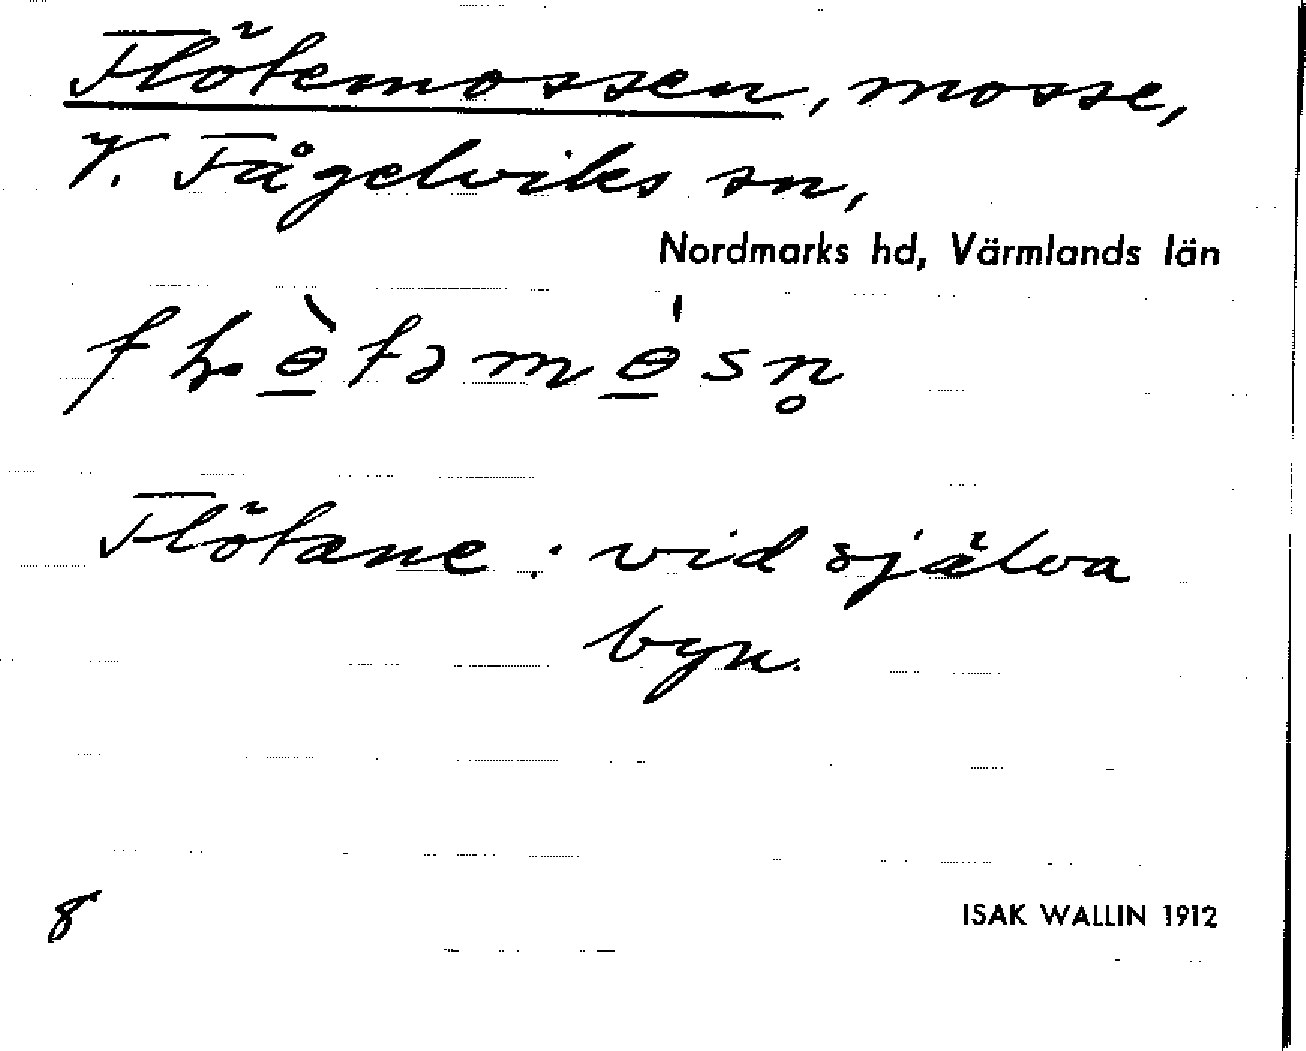 Flötemossen, mosse,
V. Fågelviks sn,
Nordmarks hd, Värmlands län
fɽɵ̀təmɵ́sn̥
Flötane : vid själva
byn.
8
ISAK WALLIN 1912